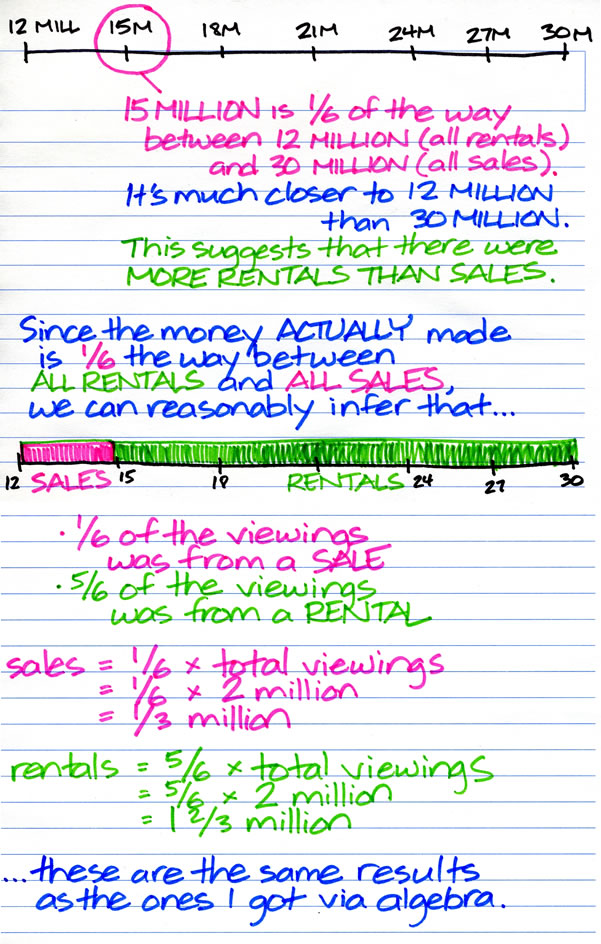 12 MILL 15M 18M 21M 24M 27M 30M
15 MILLION is 1/6 of the way
between 12 MILLION (all rentals)
and 30 MILLION (all sales).
It's much closer to 12 MILLION
than 30 MILLION.
This suggests that there were
MORE RENTALS THAN SALES.
Since the money ACTUALLY made
is 1/6 the way between
ALL RENTALS and ALL SALES,
we can reasonably infer that...
12 SALES 15 18 RENTALS 24 27 30
· 1/6 of the viewings
was from a SALE
· 5/6 of the viewings
was from a RENTAL
sales = 1/6 × total viewings
= 1/6 × 2 million
= 1/3 million
rentals = 5/6 × total viewings
= 5/6 × 2 million
= 1 2/3 million
...these are the same results
as the ones I got via algebra.